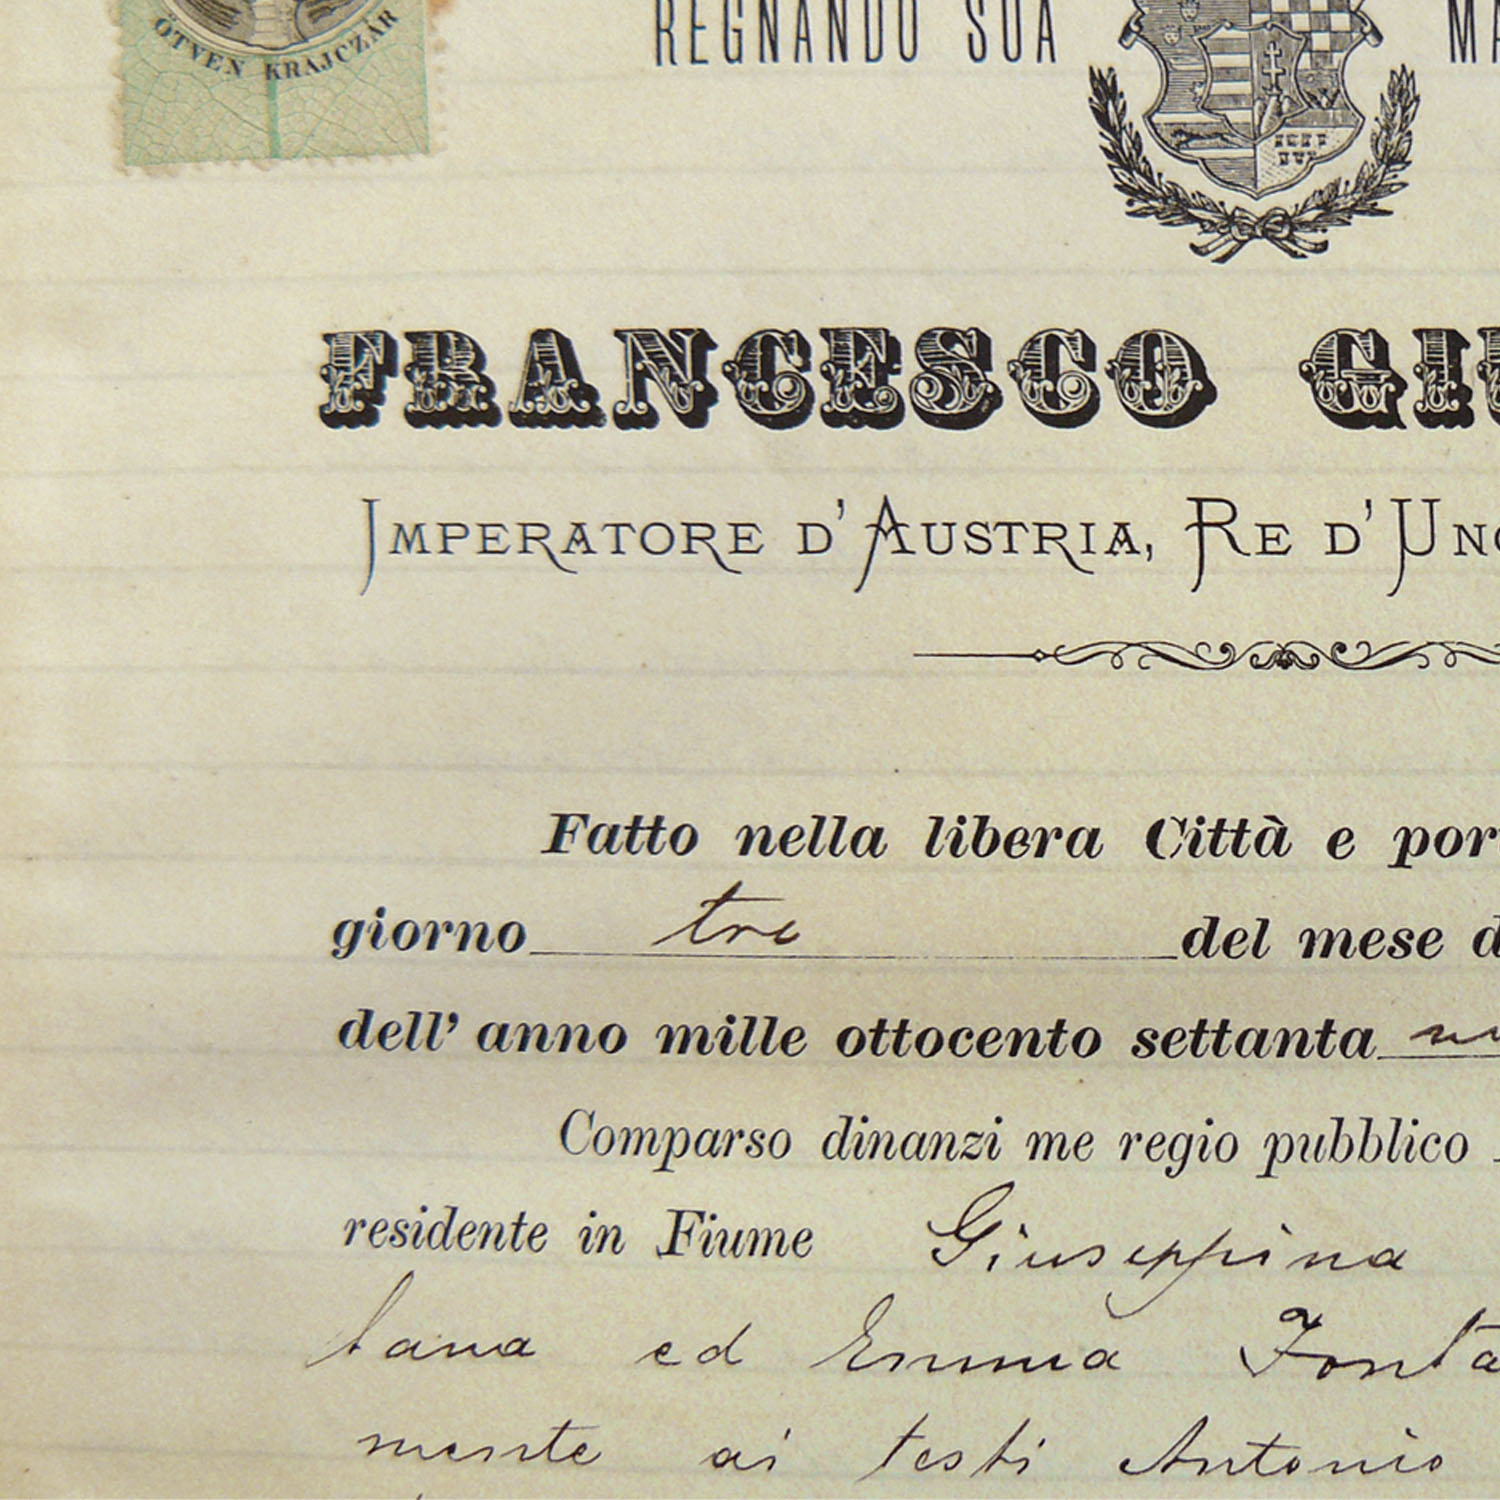 ÖTVEN KRAJCZÁR
REGNANDO SUA
FRANCESCO
IMPERATORE D'AUSTRIA, RE D'
Fatto nella libera Città e
giorno tre del mese
dell' anno mille ottocento settanta
Comparso dinanzi me regio pubblico
residente in Fiume Giuseppina
tana ed Emma
mente ai testi Antonio